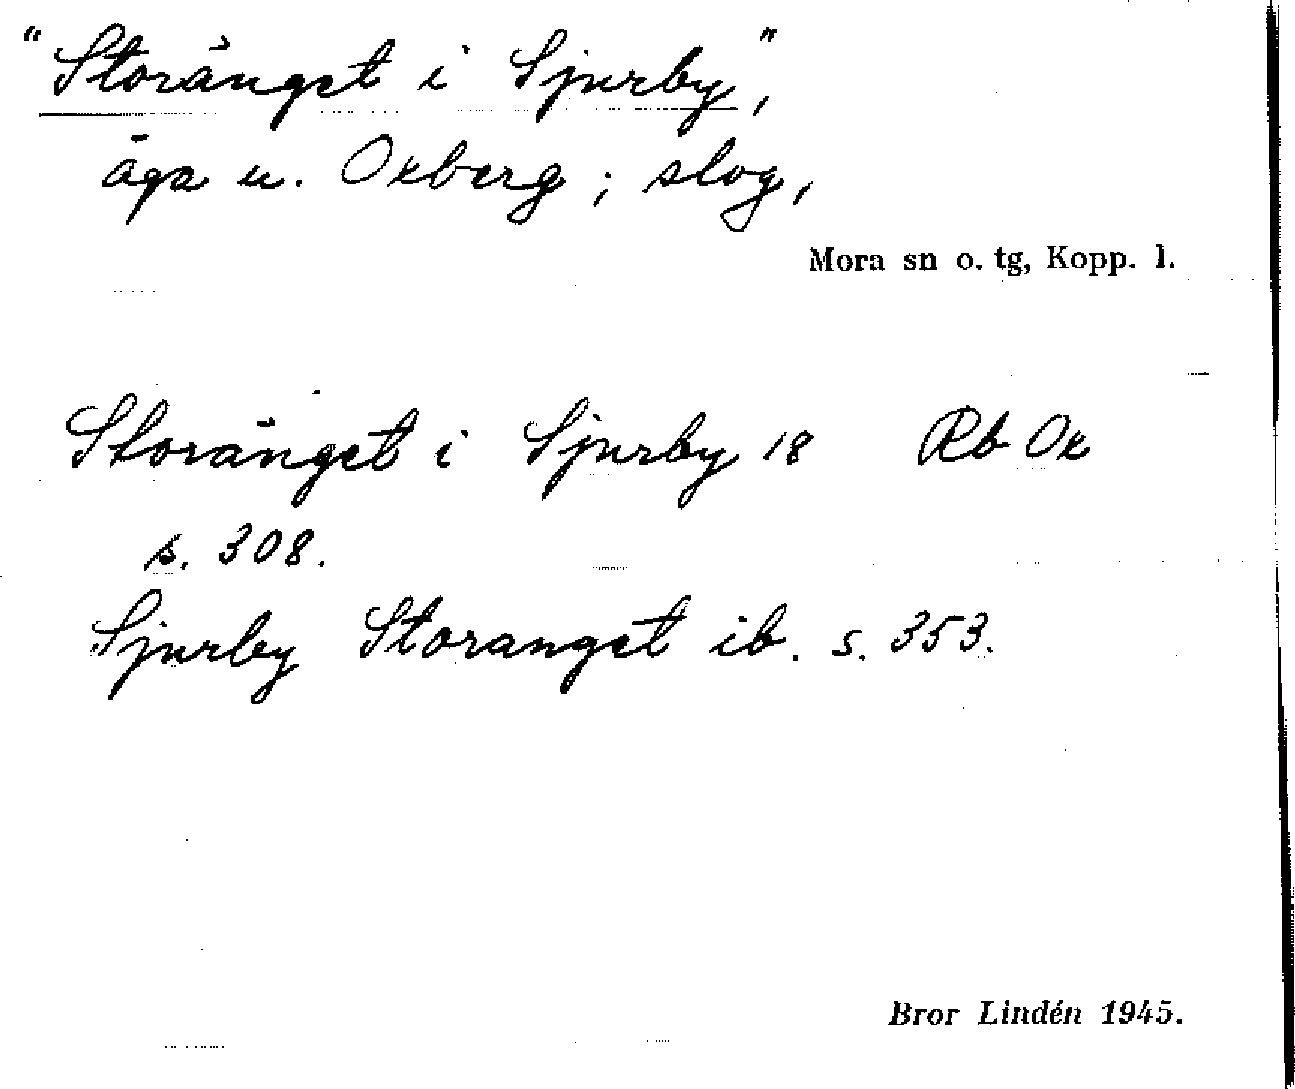 "Storänget i Sjurby",
äga u. Oxberg; slog,
Mora sn o. tg, Kopp. l.
Storänget i Sjurby 18 Rb Ox
s. 308.
Sjurby Storanget ib. s. 353.
Bror Lindén 1945.